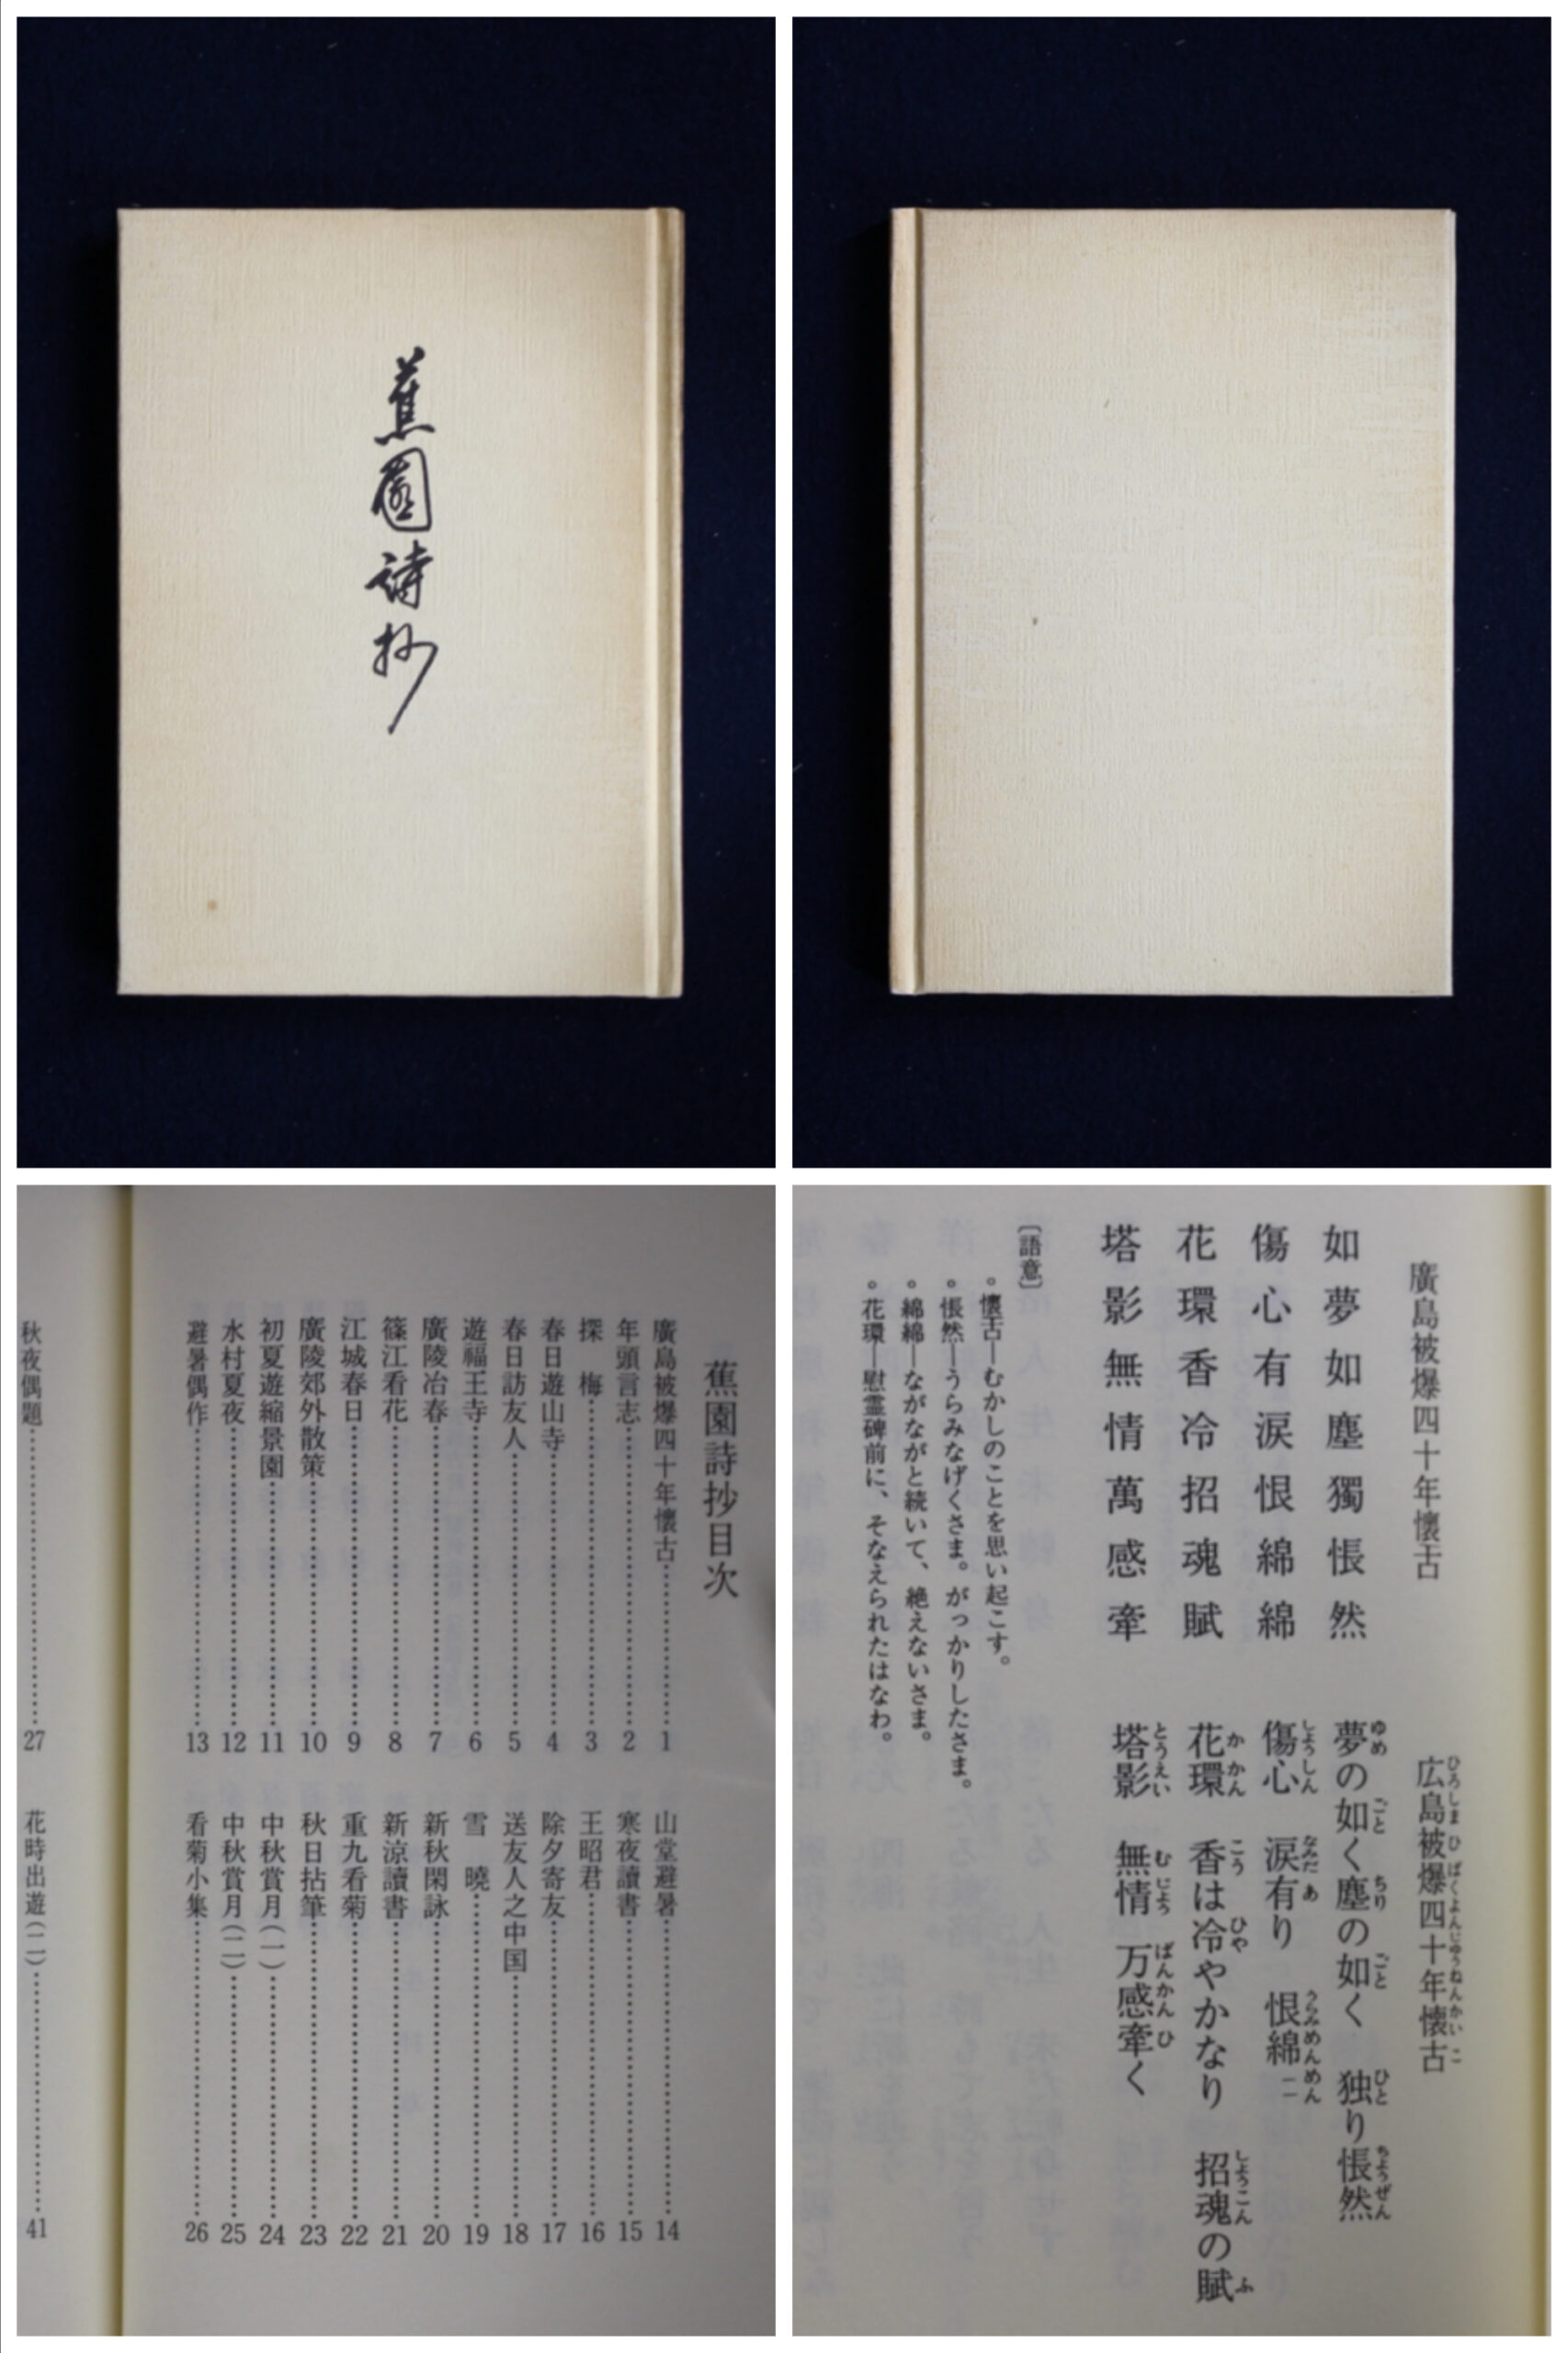 蕉園詩抄
蕉園詩抄目次
廣島被爆四十年懷古 1
年頭言志 2
探　梅 3
春日遊山寺 4
春日訪友人 5
遊福王寺 6
廣陵冶春 7
篠江看花 8
江城春日 9
廣陵郊外散策 10
初夏遊縮景園 11
水村夏夜 12
避暑偶作 13
山堂避暑 14
寒夜讀書 15
王昭君 16
除夕寄友 17
送友人之中国 18
雪　曉 19
新秋閑詠 20
新涼讀書 21
重九看菊 22
秋日拈筆 23
中秋賞月(一) 24
中秋賞月(二) 25
看菊小集 26
秋夜偶題 27
花時出遊(二) 41
廣島被爆四十年懷古
如夢如塵獨悵然
傷心有涙恨綿綿
花環香冷招魂賦
塔影無情萬感牽
広島被爆四十年懐古
夢の如く塵の如く　独り悵然
傷心　涙有り　恨綿々
花環　香は冷やかなり　招魂の賦
塔影　無情　万感牽く
〔語意〕
。懷古―むかしのことを思い起こす。
。悵然―うらみなげくさま。がっかりしたさま。
。綿綿―ながながと続いて、絶えないさま。
。花環―慰霊碑前に、そなえられたはなわ。